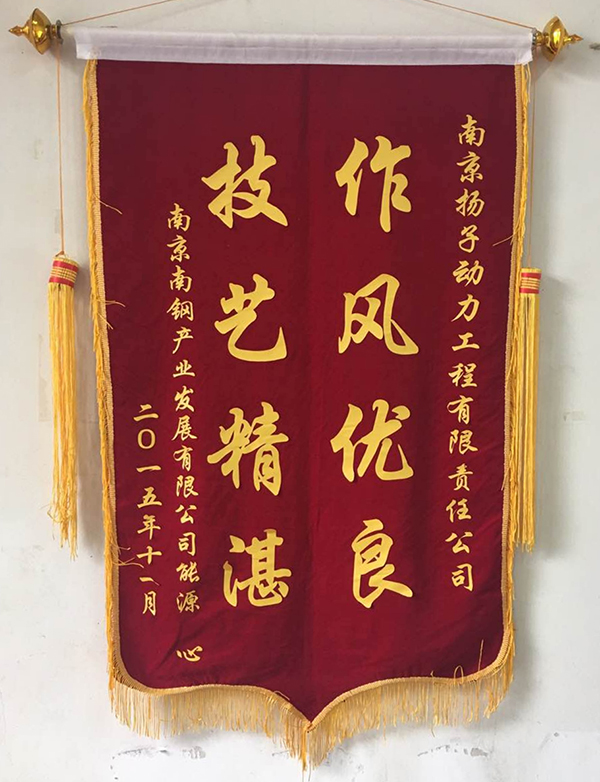 南京扬子动力工程有限责任公司
作风优良
技艺精湛
南京南钢产业发展有限公司能源 心
二〇一五年十一月